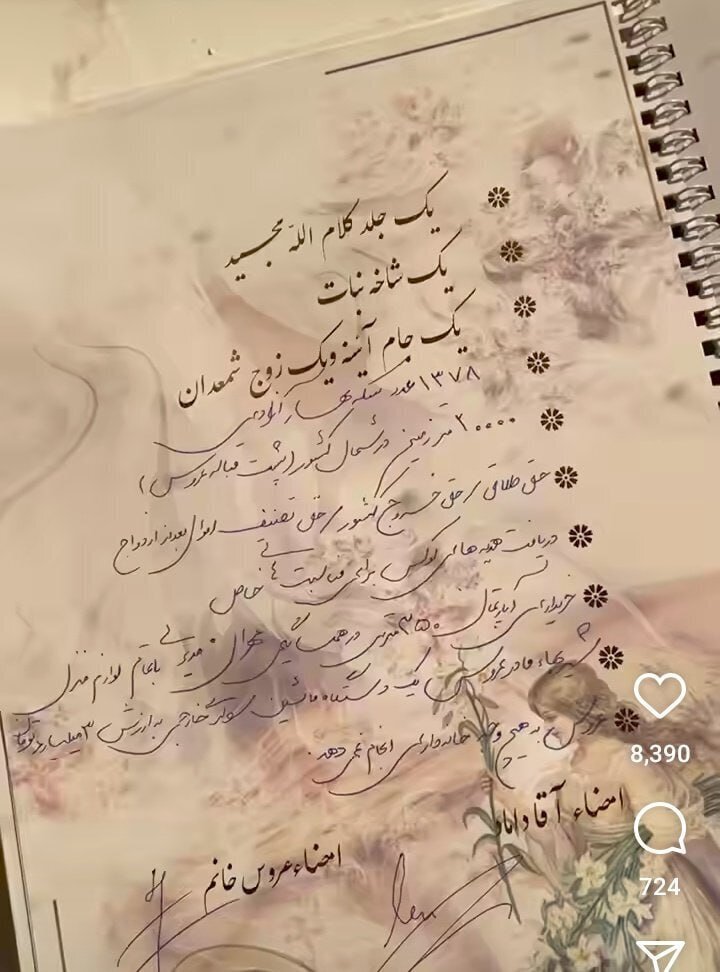 یک جلد کلام الله مجید
یک شاخه نبات
یک جام آئینه و یک زوج شمعدان
۱۳۷۸ عدد سکه بهار آزادی
۲۰۰۰۰ متر زمین در شمال کشور (پشت قباله عروس)
حق طلاق / حق خروج کشور / حق تصنیف اموال بعد از ازدواج
دریافت هدیه های لوکس برای مناسبت های خاص
خریداری آپارتمان ۳۵۰ متری در همسایگی مدیا با تمام لوازم منزل
شیربهاء مادر عروس یک دستگاه ماشین سوار خارجی به ارزش ۳ میلیارد تومان
عروس به هیچ وجه خانه داری انجام نمی دهد.
امضاء آقا داماد
امضاء عروس خانم
8,390
724